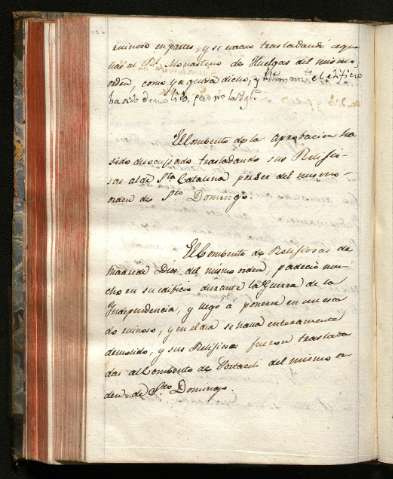 ruinoso en partes, y se varon trasladando aque
nas al Rl. Monasterio de Huelgas del mismo
orden, como ya queda dicho, y ultimamte. el edificio
ha sido demolido,
El Combento de la Aprobacion ha
sido desocupado trasladando sus Religio-
sas al de Sta. Catalina por ser del mismo
orden de Sto. Domingo.
El Combento de Religiosas de
Madre de Dios, del mismo orden, padeció mu-
cho en su edificio durante la Guerra de la
Independencia, y llegó a ponerse en un esta
do ruinoso, y en el dia se halla enteramente
demolido, y sus Religiosas fueron traslada
das al Combento de Portaceli del mismo or
den de Sto. Domingo.